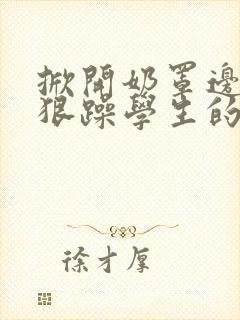 掀開奶罩邊
狠躁學生的
徐才厚